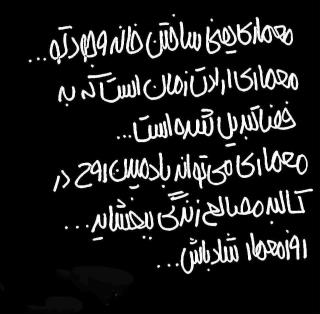 معماری یعنی ساختن خانه وجود تو...
معماری ارادت زمان است که به
فضا تبدیل شده است...
معماری می‌تواند با دمیدن روح در
کالبد مصالح زندگی ببخشاید...
روز معمار شاد باش...